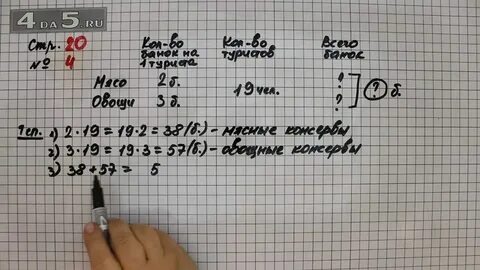 4DA5.RU
Стр. 20
№ 4
Кол-во банок на 1 туриста
Кол-во туристов
Всего банок
Мясо 2 б. 19 чел. ? ? б.
Овощи 3 б. ?
1 сп. 1) 2 · 19 = 19 · 2 = 38 (б.) - мясные консервы
2) 3 · 19 = 19 · 3 = 57 (б.) - овощные консервы
3) 38 + 57 = 5